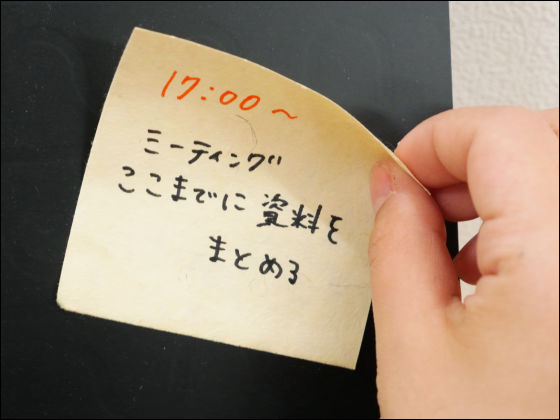 17:00～
ミーティング
ここまでに資料を
まとめる